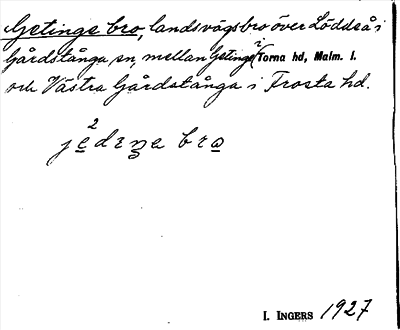 Getinge bro, landsvägsbro över Löddeå i
Gårdstånga sn, mellan Getinge i Torna hd, Malm. l.
och Västra Gårdstånga i Frosta hd.
2
bro
I. INGERS 1927